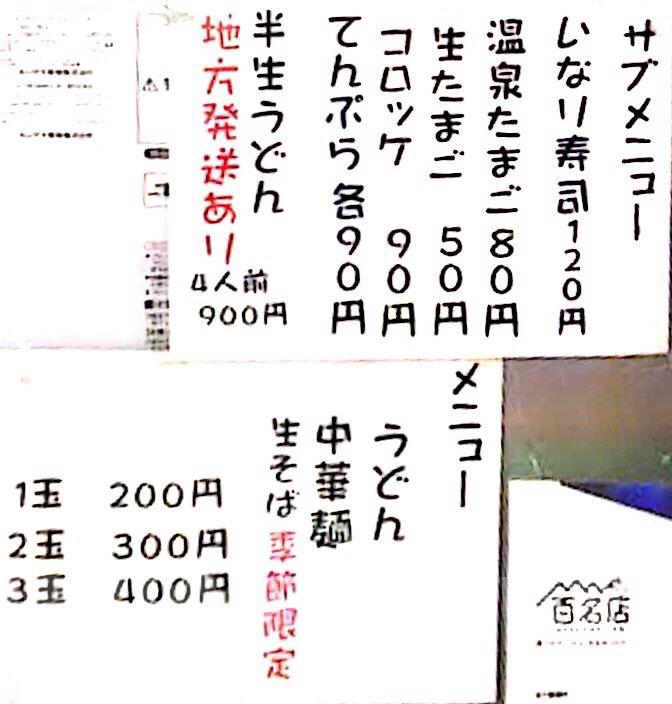 サブメニュー
いなり寿司120円
温泉たまご80円
生たまご 50円
コロッケ 90円
てんぷら各90円
半生うどん
地方発送あり
4人前
900円
メニュー
うどん
中華麺
生そば 季節限定
1玉 200円
2玉 300円
3玉 400円
百名店